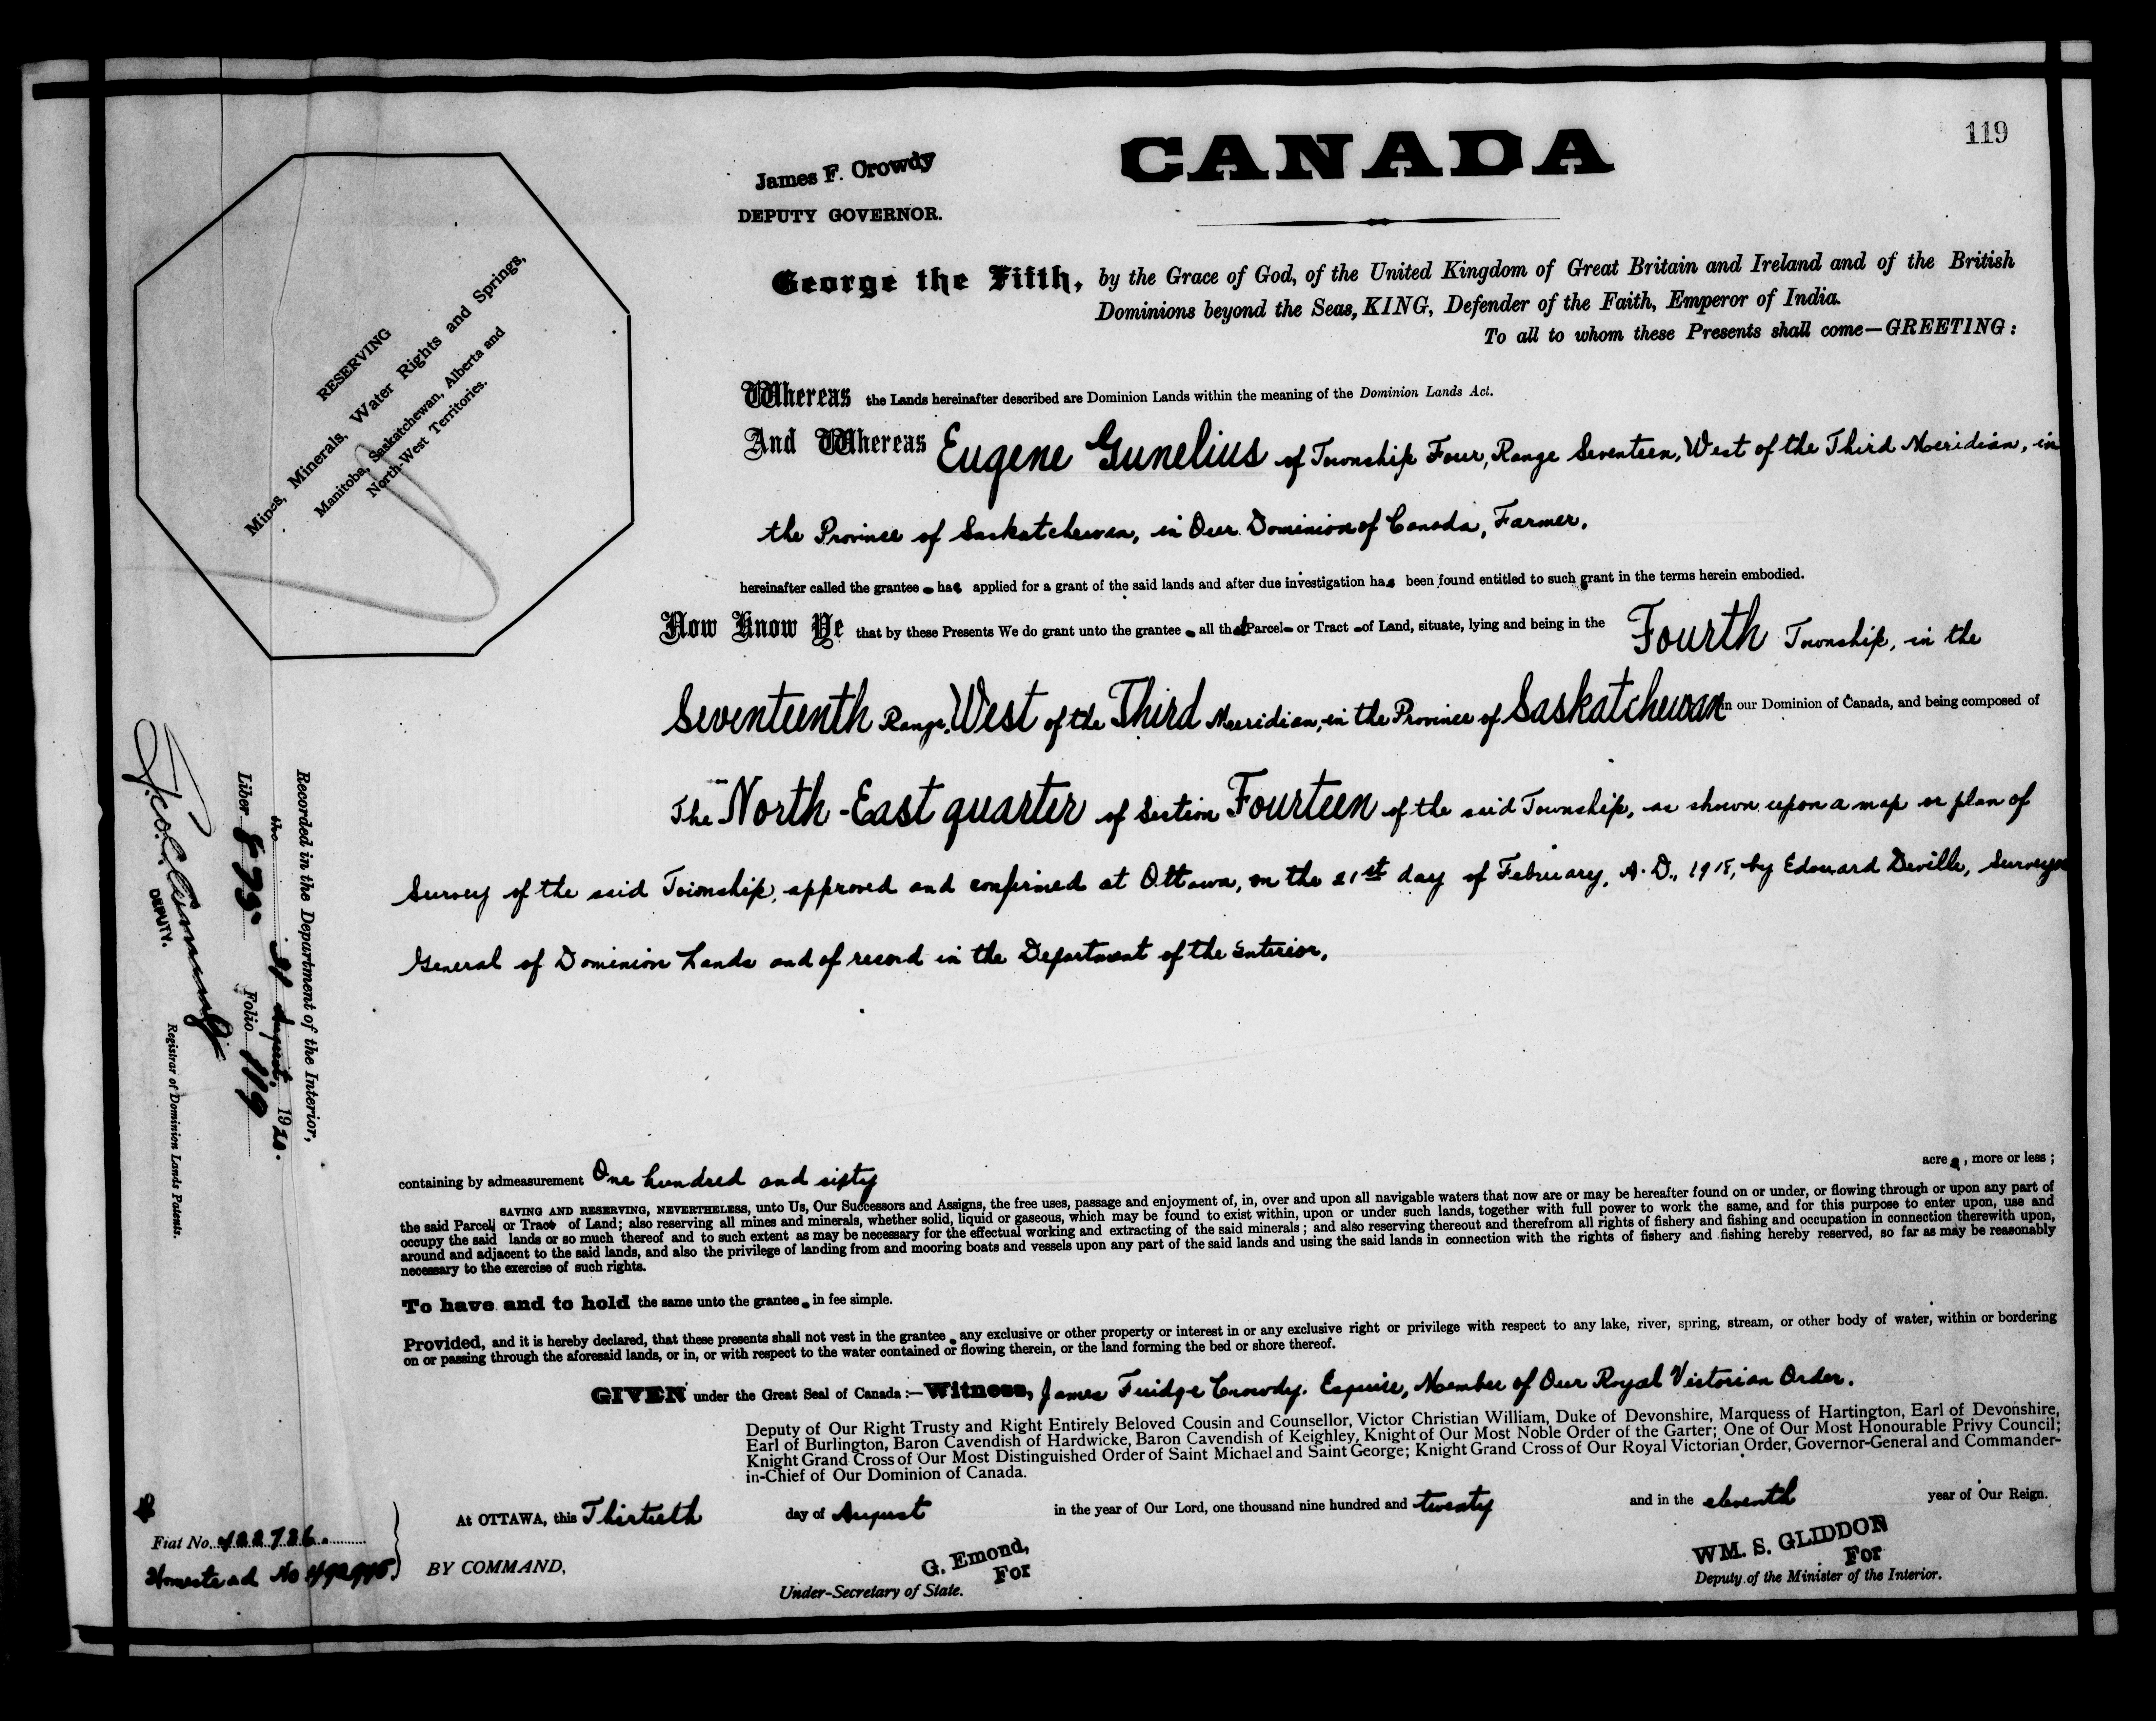 119
CANADA
James F. Crowdy
DEPUTY GOVERNOR.
George the Fifth, by the Grace of God, of the United Kingdom of Great Britain and Ireland and of the British
Dominions beyond the Seas, KING, Defender of the Faith, Emperor of India.
To all to whom these Presents shall come—GREETING:
RESERVING
Mines, Minerals, Water Rights and Springs,
Manitoba, Saskatchewan, Alberta and
North-West Territories.
Whereas the Lands hereinafter described are Dominion Lands within the meaning of the Dominion Lands Act.
And Whereas Eugene Gunelius of Township Four, Range Seventeen, West of the Third Meridian, in
the Province of Saskatchewan, in Our Dominion of Canada, Farmer,
hereinafter called the grantee has applied for a grant of the said lands and after due investigation has been found entitled to such grant in the terms herein embodied.
Now Know Ye that by these Presents We do grant unto the grantee all that Parcel or Tract of Land, situate, lying and being in the Fourth Township, in the
Seventeenth Range, West of the Third Meridian, in the Province of Saskatchewan in our Dominion of Canada, and being composed of
The North-East quarter of Section Fourteen of the said Township, as shown upon a map or plan of
Survey of the said Township, approved and confirmed at Ottawa, on the 21st day of February, A.D., 1918, by Edouard Deville, Surveyor
General of Dominion Lands and of record in the Department of the Interior,
Recorded in the Department of the Interior,
the 31 August, 1920.
Liber 873 Folio 119
DEPUTY.
Registrar of Dominion Lands Patents.
containing by admeasurement One hundred and sixty acres, more or less;
SAVING AND RESERVING, NEVERTHELESS, unto Us, Our Successors and Assigns, the free uses, passage and enjoyment of, in, over and upon all navigable waters that now are or may be hereafter found on or under, or flowing through or upon any part of
the said Parcel or Tract of Land; also reserving all mines and minerals, whether solid, liquid or gaseous, which may be found to exist within, upon or under such lands, together with full power to work the same, and for this purpose to enter upon, use and
occupy the said lands or so much thereof and to such extent as may be necessary for the effectual working and extracting of the said minerals; and also reserving thereout and therefrom all rights of fishery and fishing and occupation in connection therewith upon,
around and adjacent to the said lands, and also the privilege of landing from and mooring boats and vessels upon any part of the said lands and using the said lands in connection with the rights of fishery and fishing hereby reserved, so far as may be reasonably
necessary to the exercise of such rights.
To have and to hold the same unto the grantee in fee simple.
Provided, and it is hereby declared, that these presents shall not vest in the grantee any exclusive or other property or interest in or any exclusive right or privilege with respect to any lake, river, spring, stream, or other body of water, within or bordering
on or passing through the aforesaid lands, or in, or with respect to the water contained or flowing therein, or the land forming the bed or shore thereof.
GIVEN under the Great Seal of Canada:—Witness, James Fuidge Crowdy, Esquire, Member of Our Royal Victorian Order.
Deputy of Our Right Trusty and Right Entirely Beloved Cousin and Counsellor, Victor Christian William, Duke of Devonshire, Marquess of Hartington, Earl of Devonshire,
Earl of Burlington, Baron Cavendish of Hardwicke, Baron Cavendish of Keighley, Knight of Our Most Noble Order of the Garter; One of Our Most Honourable Privy Council;
Knight Grand Cross of Our Most Distinguished Order of Saint Michael and Saint George; Knight Grand Cross of Our Royal Victorian Order, Governor-General and Commander-
in-Chief of Our Dominion of Canada.
At OTTAWA, this Thirtieth day of August in the year of Our Lord, one thousand nine hundred and twenty and in the eleventh year of Our Reign.
Fiat No. 422726.
Homestead No
BY COMMAND,
G. Emond,
For
Under-Secretary of State.
WM. S. GLIDDON
For
Deputy of the Minister of the Interior.